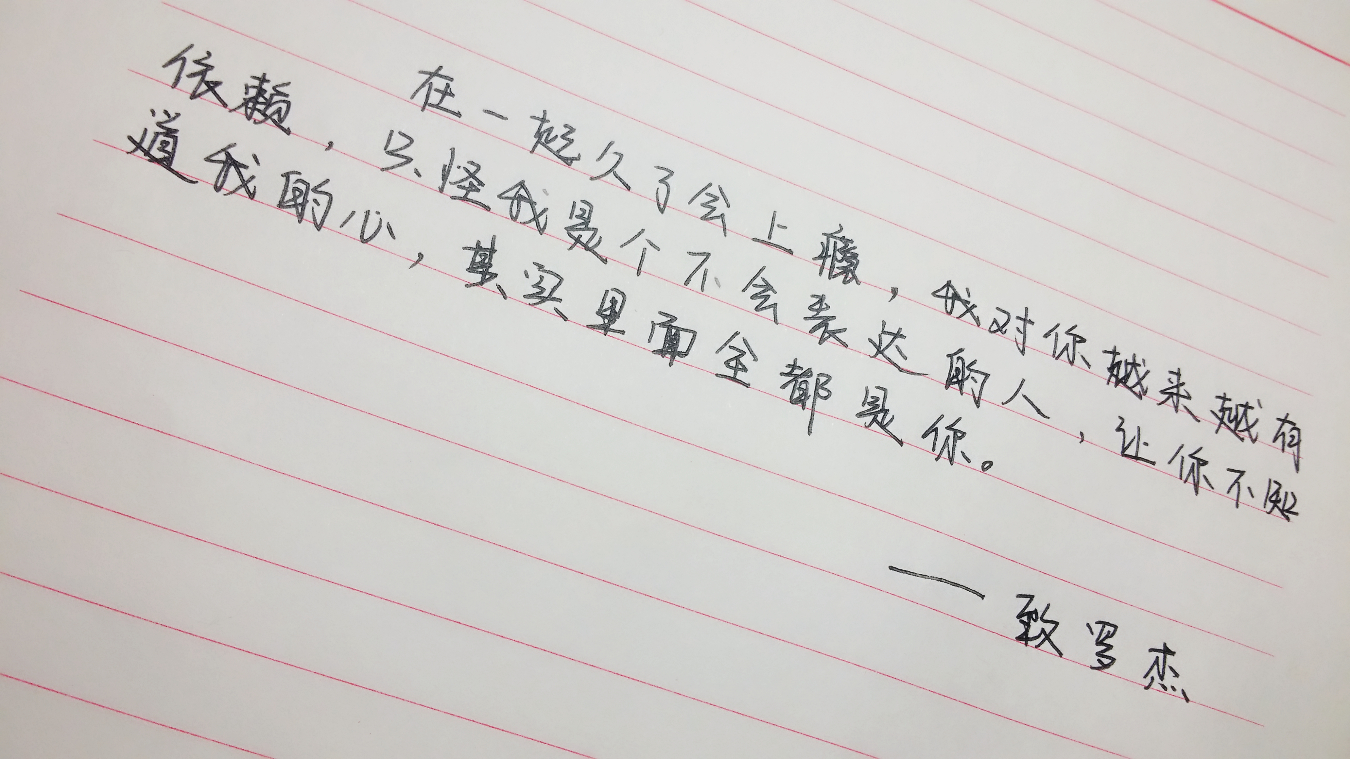 在一起久了会上瘾，我对你越来越有
依赖，只怪我是个不会表达的人，让你不知
道我的心，其实里面全都是你。
——致罗杰